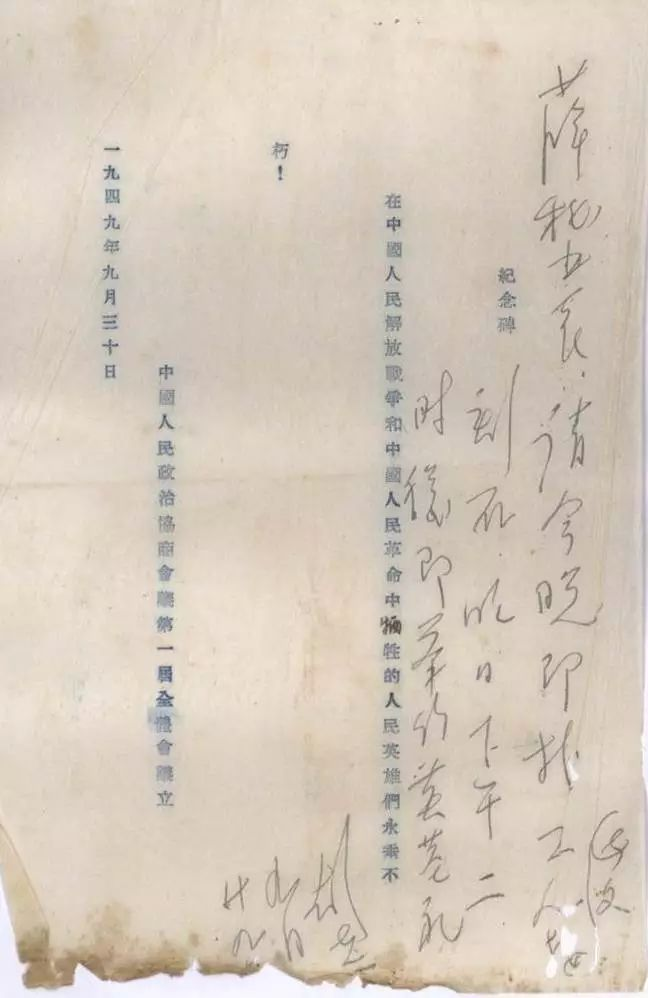 薛秘书长：请今晚即找工人
紀念碑
刻石明日下午二
时後即举行奠基礼
在中國人民解放戰爭和中國人民革命中牺牲的人民英雄們永垂不
朽！
九月
廿九日
中國人民政治協商會議第一届全體會議立
一九四九年九月三十日